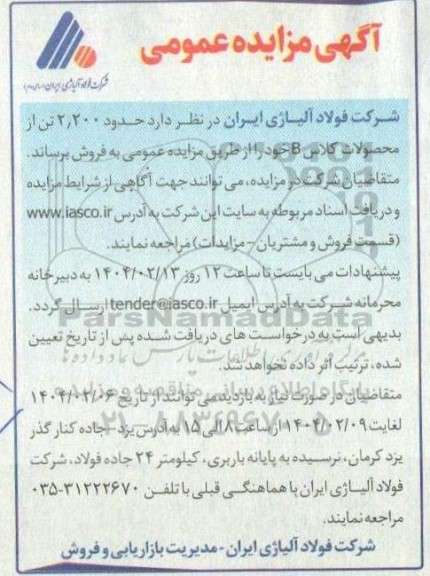 آگهی مزایده عمومی
شرکت فولاد آلیاژی ایران (سهامی عام)
شرکت فولاد آلیاژی ایران در نظر دارد حدود ۲,۲۰۰ تن از
محصولات کلاس B خود را از طریق مزایده عمومی به فروش برساند.
متقاضیان شرکت در مزایده، می توانند جهت آگاهی از شرایط مزایده
و دریافت اسناد مربوطه به سایت این شرکت به آدرس www.iasco.ir
(قسمت فروش و مشتریان - مزایدات) مراجعه نمایند.
پیشنهادات می بایست تا ساعت ۱۲ روز ۱۴۰۴/۰۲/۱۳ به دبیرخانه
محرمانه شرکت به آدرس ایمیل tender@iasco.ir ارسال گردد.
ParsNamadData
بدیهی است به درخواست های دریافت شده پس از تاریخ تعیین
شده، ترتیب اثر داده نخواهد شد.
متقاضیان در صورت نیاز به بازدید می توانند از تاریخ ۱۴۰۴/۰۲/۰۶
لغایت ۱۴۰۴/۰۲/۰۹ از ساعت ۸ الی ۱۵ به آدرس یزد - جاده کنار گذر
یزد کرمان، نرسیده به پایانه باربری، کیلومتر ۲۴ جاده فولاد، شرکت
فولاد آلیاژی ایران با هماهنگی قبلی با تلفن ۳۱۲۲۲۶۷۰-۰۳۵
مراجعه نمایند.
شرکت فولاد آلیاژی ایران - مدیریت بازاریابی و فروش